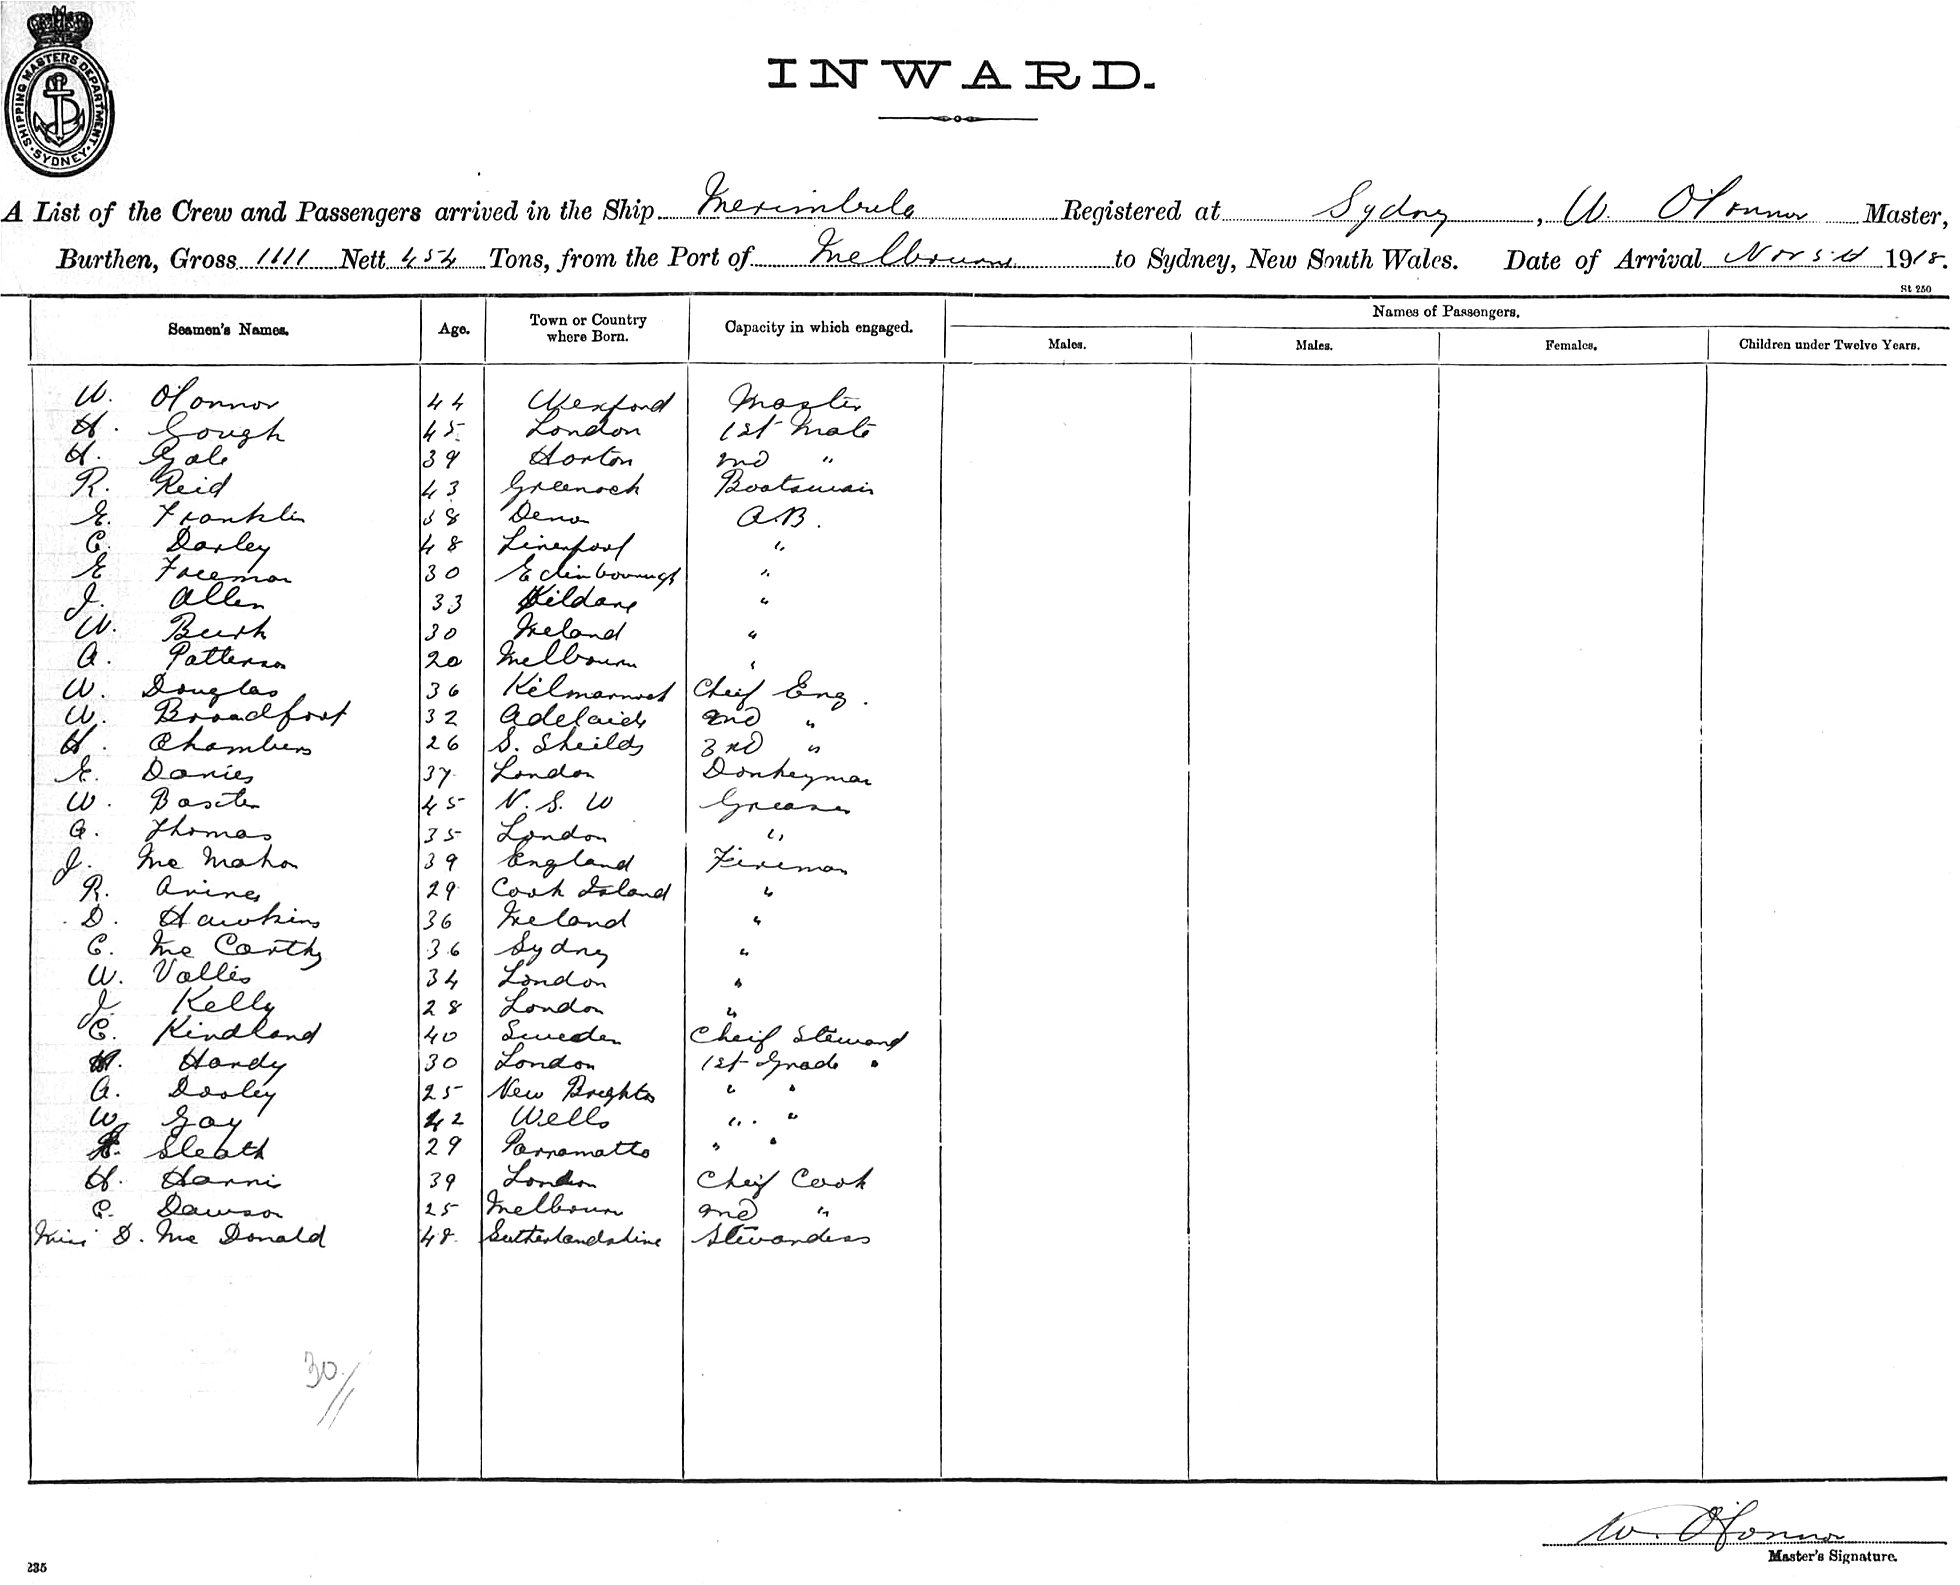 SHIPPING MASTERS DEPARTMENT
SYDNEY
INWARD.
A List of the Crew and Passengers arrived in the Ship Merimbula Registered at Sydney, W. O'Connor Master,
Burthen, Gross 1111 Nett 454 Tons, from the Port of Melbourne to Sydney, New South Wales. Date of Arrival Nov 5th 1918.
St 250
Seamen's Names. Age. Town or Country where Born. Capacity in which engaged. Names of Passengers.
Males. Males. Females. Children under Twelve Years.
W. O'Connor 44 Wexford Master
H. Gough 45 London 1st Mate
H. Gale 39 Horton 2nd "
R. Reid 43 Greenock Boatswain
E. Franklin 38 Devon A.B.
C. Darley 48 Liverpool "
E Freeman 30 Edinbourough "
J. Allen 33 Kildare "
W. Burk 30 Ireland "
A. Patterson 20 Melbourn "
W. Douglas 36 Kilmarnock Cheif Eng.
W. Broadfoot 32 Adelaide 2nd "
H. Chambers 26 S. Sheilds 3rd "
E. Davies 37 London Donkeyman
W. Baxter 45 N. S. W Greaser
G. Thomas 35 London "
J. Mc Mahon 39 England Fireman
R. 29 Cook Island "
D. Hawkins 36 Ireland "
C. Mc Carthy 36 Sydney "
W. Vallis 34 London "
J. Kelly 28 London "
C. Kindland 40 Sweden Cheif Steward
H. Hardy 30 London 1st Grade "
A. Dooley 25 New Brighton " "
W. Gay 42 Wells " "
Sleath 29 Parramatta " "
H. Harris 39 London Cheif Cook
C. Dawson 25 Melbourn 2nd "
Miss D. Mc Donald 48 Sutherlandshire Stewardess
30//
W. O'Connor
Master's Signature.
235